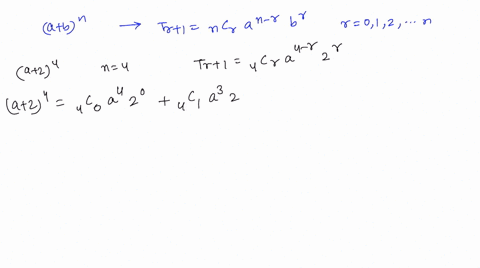 (a+b)^n → T_{r+1} = nC_r a^{n-r} b^r r=0,1,2,⋯n
(a+2)^4 n=4 T_{r+1} = ₄C_r a^{4-r} 2^r
(a+2)^4 = ₄C_0 a^4 2^0 + ₄C_1 a^3 2